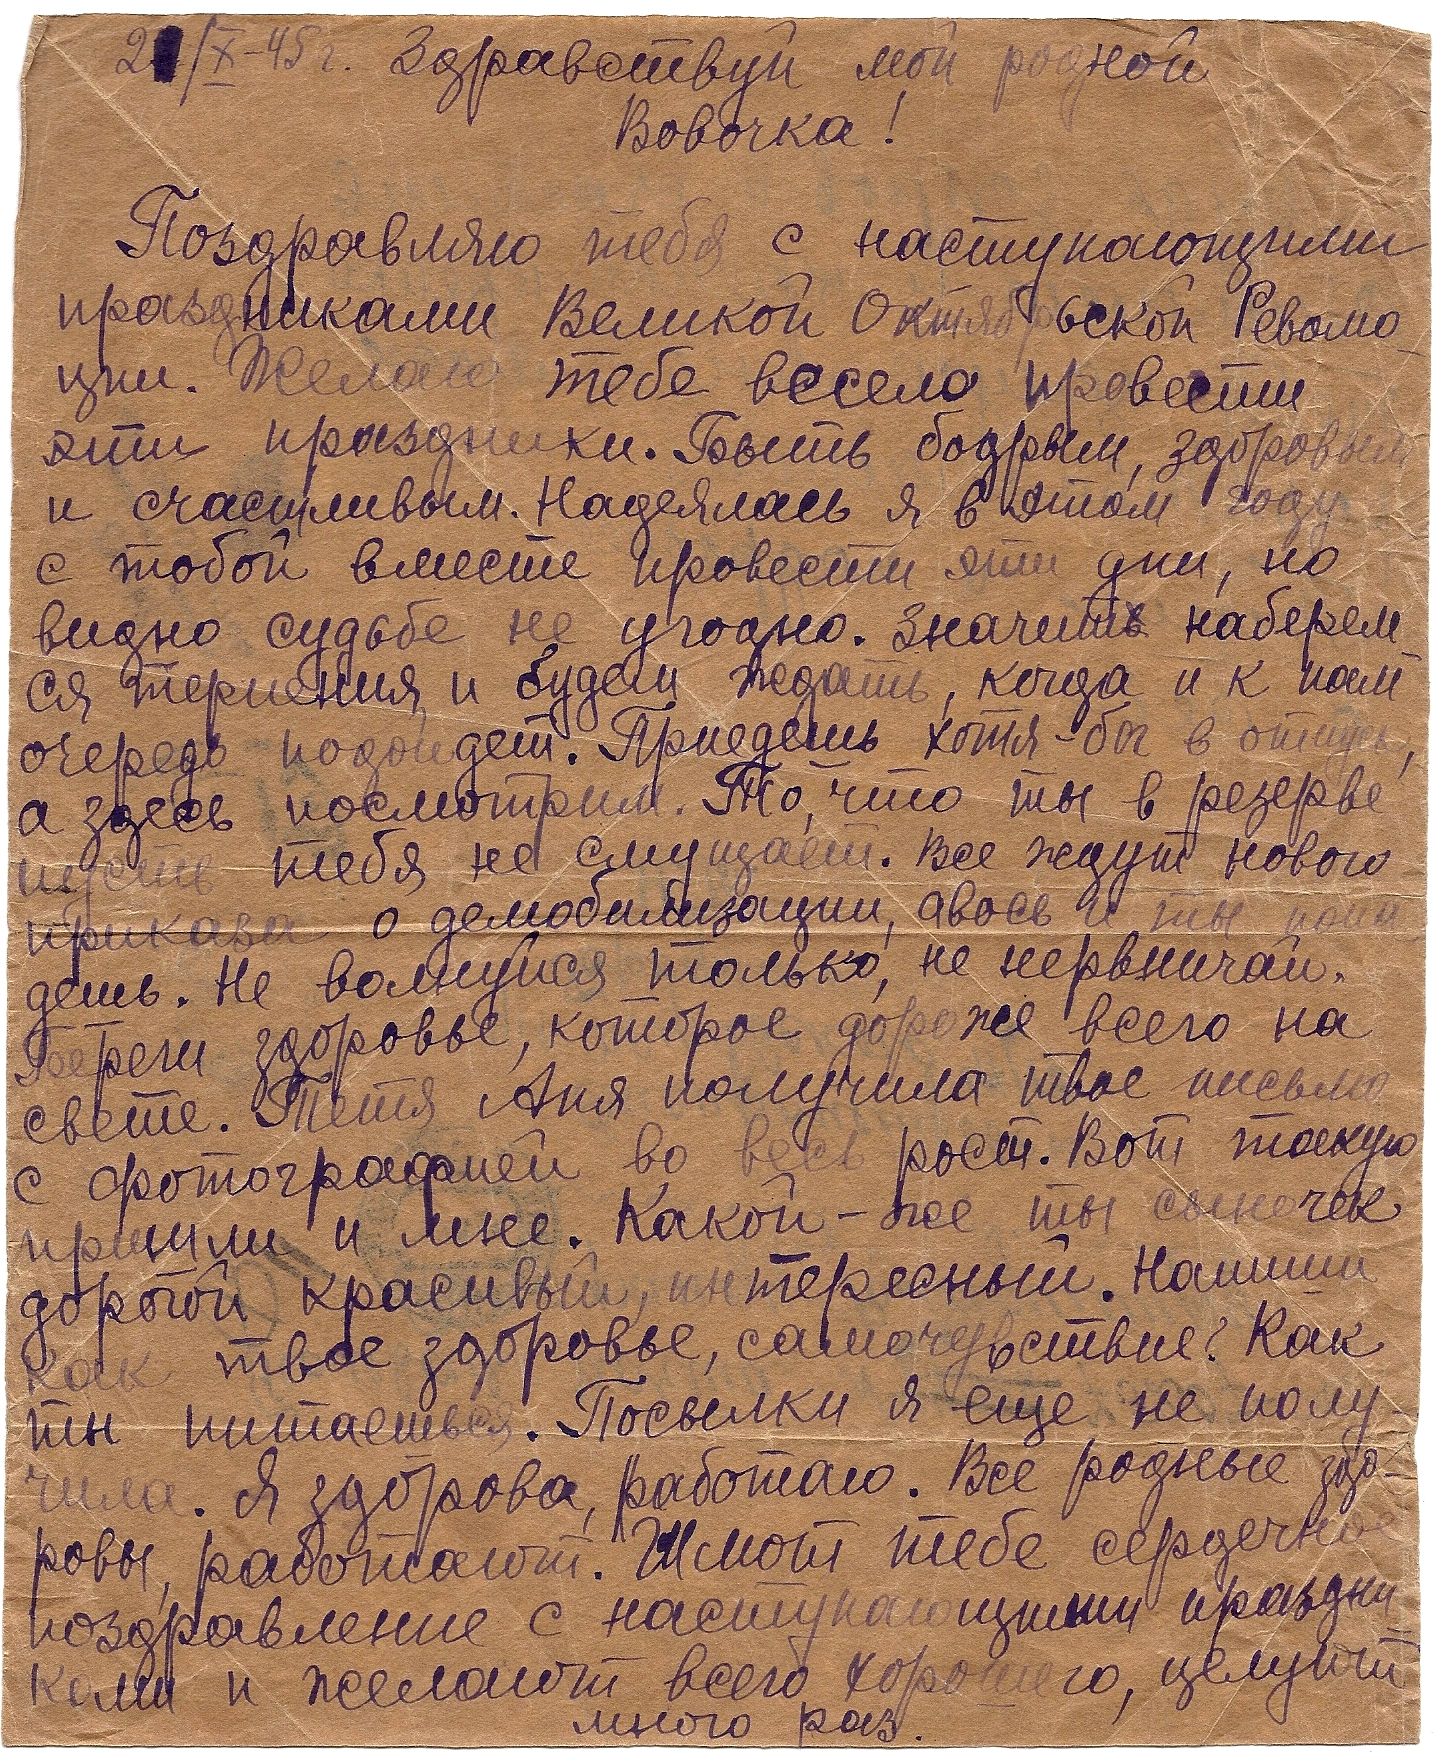 21/X-45 г. Здравствуй мой родной
Вовочка!
Поздравляю тебя с наступающими
праздниками Великой Октябрьской Револю-
ции. Желаю тебе весело провести
эти праздники. Быть бодрым, здоровым
и счастливым. Надеялась я в этом году
с тобой вместе провести эти дни, но
видно судьбе не угодно. Значить наберем
ся терпения и будем ждать, когда и к нам
очередь подойдет. Приедешь хотя-бы в отпуск,
а здесь посмотрим. То, что ты в резерве
пусть тебя не смущает. Все ждут нового
приказа о демобилизации, авось и ты попа
дешь. Не волнуйся только, не нервничай.
Береги здоровье, которое дороже всего на
свете. Тетя Аня получила твое письмо
с фотографией во весь рост. Вот такую
пришли и мне. Какой-же ты сыночек
дорогой красивый, интересный. Напиши
как твое здоровье, самочувствие? Как
ты питаешься. Посылки я еще не полу-
чила. Я здорова, работаю. Все родные здо-
ровы, работают. Шлют тебе сердечное
поздравление с наступающими праздни
ками и желают всего хорошего, целуют
много раз.